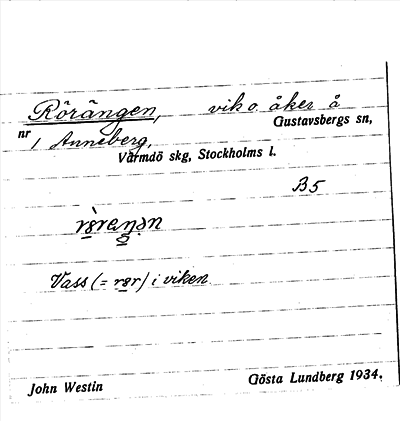 Rörängen, vik o. åker å
nr 1 Anneberg, Gustavsbergs sn,
Värmdö skg, Stockholms l.
B5
Vass (= rör) i viken
John Westin Gösta Lundberg 1934.